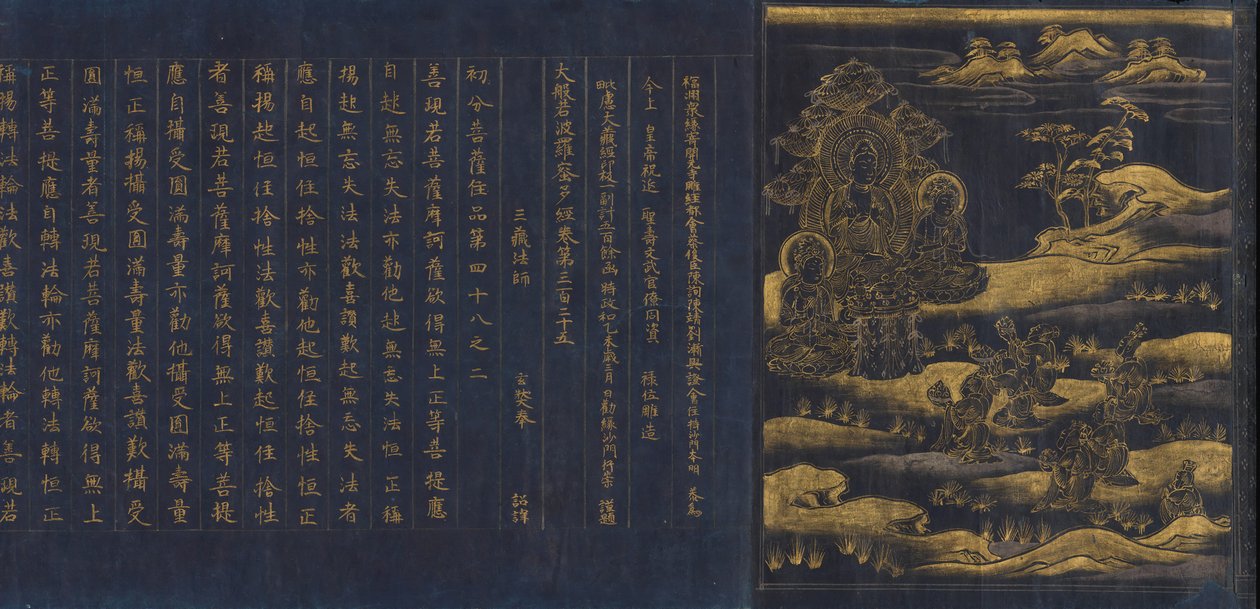 福州衆緣寄開元寺雕經都會蔡俊臣陳詢陳靖劉漸與證會住持沙門本明 恭為
今上 皇帝祝延 聖壽文武官僚同資 祿位雕造
毗盧大藏經印板一副計五百餘函 時政和乙未歲三月 日勸緣沙門行崇 謹題
大般若波羅蜜多經卷第三百二十五
三藏法師 玄奘奉 詔譯
初分菩薩住品第四十八之二
善現若菩薩摩訶薩欲得無上正等菩提應
自起無忘失法亦勸他起無忘失法恒正稱
揚起無忘失法法歡喜讚歎起無忘失法者
應自起恒住捨性亦勸他起恒住捨性恒正
稱揚起恒住捨性法歡喜讚歎起恒住捨性
者善現若菩薩摩訶薩欲得無上正等菩提
應自攝受圓滿壽量亦勸他攝受圓滿壽量
恒正稱揚攝受圓滿壽量法歡喜讚歎攝受
圓滿壽量者善現若菩薩摩訶薩欲得無上
正等菩提應自轉法輪亦勸他轉法輪恒正
稱揚轉法輪法歡喜讚歎轉法輪者善現若